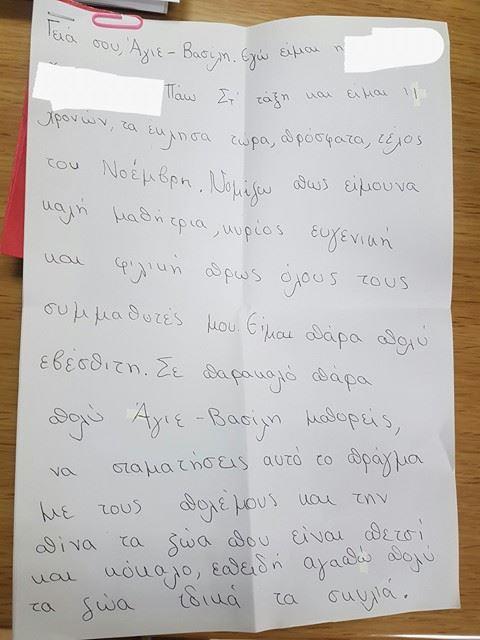 Γειά σου, Άγιε-Βασίλη. Εγώ είμαι η
Πάω Στ' τάξη και είμαι 11
χρονών, τα έκλησα τώρα, πρόσφατα, τέλος
του Νοέμβρη. Νομίζω πως είμουνα
καλή μαθήτρια, κυρίος ευγενική
και φιλική πρως όλους τους
συμμαθυτές μου. Είμαι πάρα πολύ
εβέσθιτη. Σε παρακαλό πάρα
πολύ Άγιε-Βασίλη μπορείς,
να σταματήσεις αυτό το πράγμα
με τους πολέμους και την
πίνα τα ζώα που είναι πετσί
και κόκαλο, επειδή αγαπώ πολύ
τα ζώα ιδικά τα σκυλιά.